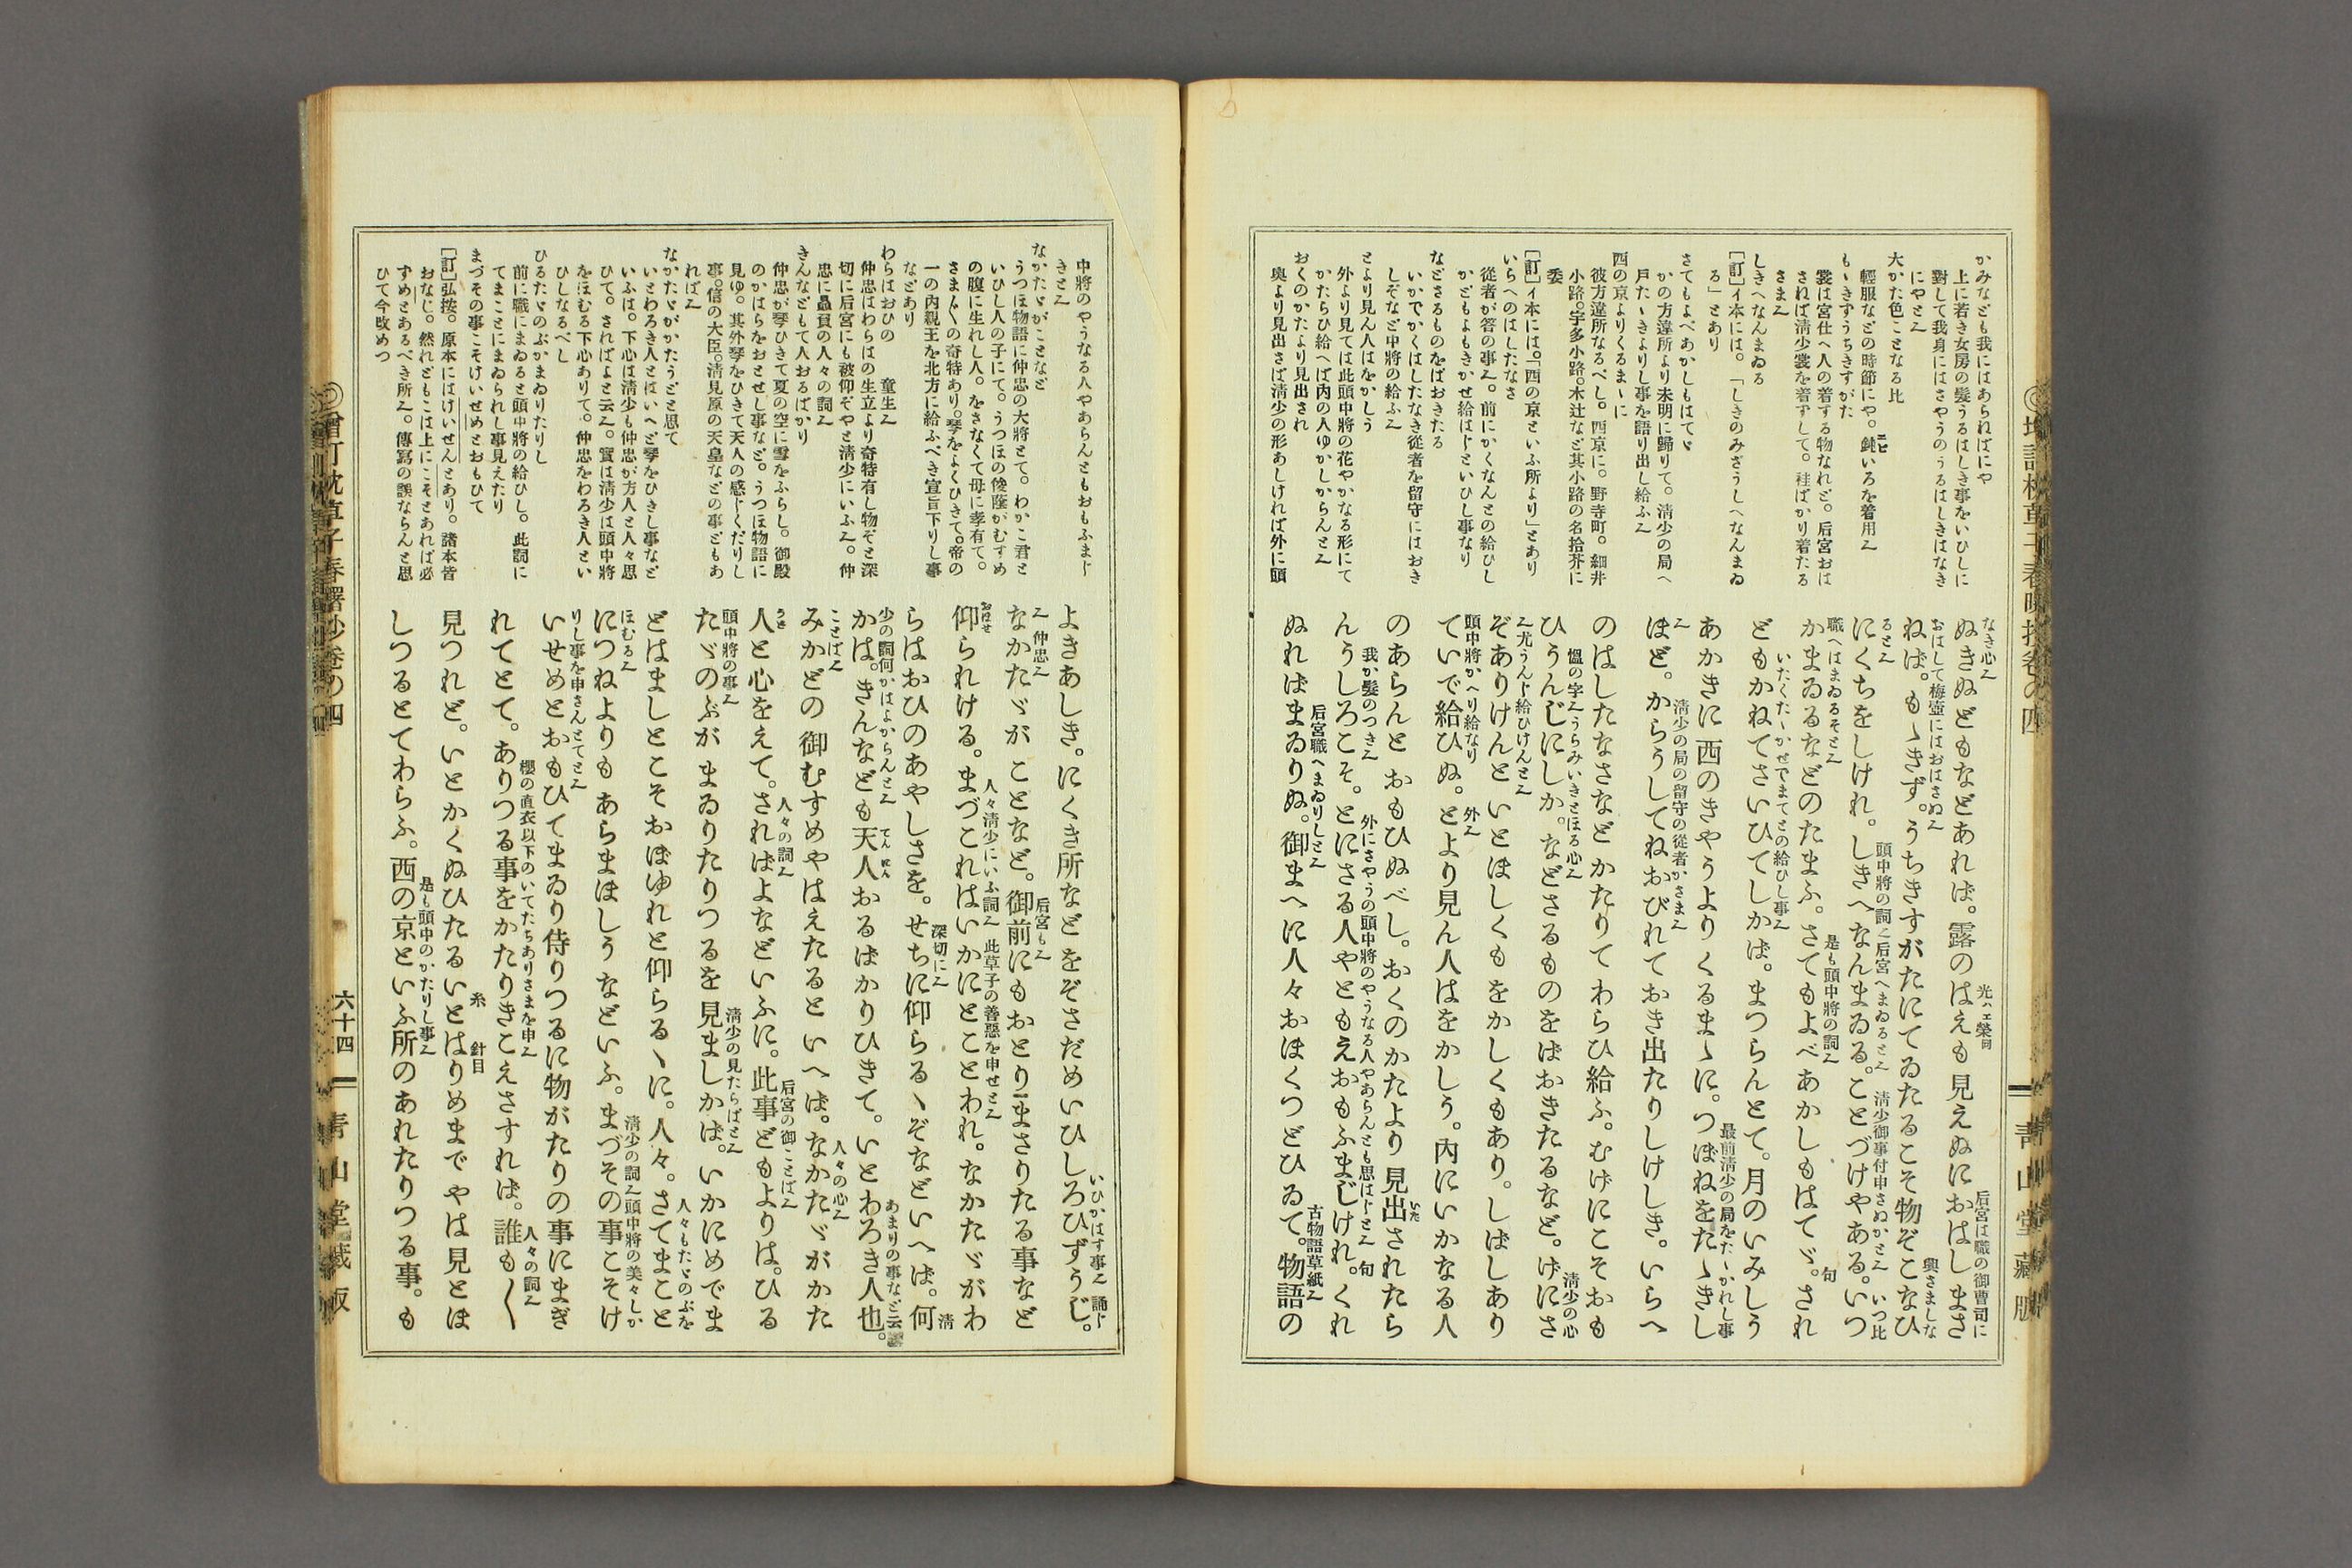 かみなども我にはあらねばにや
上に若き女房の髪うるはしき事をいひしに
對して我身にはさやうのうるはしきはなき
にやと也
大かた色ことなる比
輕服などの時節にや。鈍いろを着用也
もゝきずうちきすがた
裳は宮仕へ人の着する物なれど。后宮おは
さねば淸少裳を着ずして。袿ばかり着たる
さま也
しきへなんまゐる
[訂]イ本には。「しきのみざうしへなんまゐ
る」とあり
さてもよべあかしもはてゞ
かの方違所より未明に歸りて。淸少の局へ
戸たゝきよりし事を語り出し給ふ也
西の京よりくるまゝに
彼方違所なるべし。西京に。野寺町。細井
小路。宇多小路。木辻など其小路の名拾芥に
委
[訂]イ本には。「西の京といふ所より」とあり
いらへのはしたなさ
從者が答の事也。前にかくなんとの給ひし
かどもよもきかせ給はじといひし事なり
などさるものをばおきたる
いかでかくはしたなき從者を留守にはおき
しぞなど中將の給ふ也
とより見ん人はをかしう
外より見ては此頭中將の花やかなる形にて
かたらひ給へば内の人ゆかしからんと也
おくのかたより見出され
奥より見出さば淸少の形あしければ外に頭
なき心也
光ハエ榮同
后宮は職の御曹司に
ぬきぬどもなどあれば。露のはえも見えぬにおはしまさ
おはして梅壺にはおはさぬ也
興さましな
ねば。もゝきず。うちきすがたにてゐたるこそ物ぞこなひ
ると也
頭中將の詞也后宮へまゐると也
淸少御事付申さぬかと也
いつ比
にくちをしけれ。しきへなんまゐる。ことづけやある。いつ
職へはまゐるぞと也
是も頭中將の詞也
句
かまゐるなどのたまふ。さてもよべあかしもはてゞ。され
いたくたゝかせでまてとの給ひし事也
どもかねてさいひてしかば。まつらんとて。月のいみしう
最前淸少の局をたゝかれし事
あかきに西のきやうよりくるまゝに。つぼねをたゝきし
也
淸少の局の留守の從者かさま也
ほど。からうしてねおびれておき出たりしけしき。いらへ
のはしたなさなどかたりてわらひ給ふ。むげにこそおも
慍の字也うらみいきとほる心也
淸少の心
ひうんじにしか。などさるものをばおきたるなど。げにさ
也尤うんじ給ひけんと也
ぞありけんといとほしくもをかしくもあり。しばしあり
頭中將かへり給なり
外也
ていで給ひぬ。とより見ん人はをかしう。内にいかなる人
のあらんとおもひぬべし。おくのかたより見出されたら
我か髪のつき也
外にさやうの頭中將のやうなる人やあらんとも思はじと也
句
んうしろこそ。とにさる人やともえおもふまじけれ。くれ
后宮職へまゐりしと也
古物語草紙也
ぬればまゐりぬ。御まへに人々おほくつどひゐて。物語の
靑山堂藏版
中將のやうなる人やあらんともおもふまじ
きと也
なかたゞがことなど
うつほ物語に仲忠の大將とて。わかこ君と
いひし人の子にて。うつほの俊蔭がむすめ
の腹に生れし人。をさなくて母に孝有て。
さま〲の奇特あり。琴をよくひきて。帝の
一の内親王を北方に給ふべき宣旨下りし事
などあり
わらはおひの　童生也
仲忠はわらはの生立より奇特有し物ぞと深
切に后宮にも被仰ぞやと淸少にいふ也。仲
忠に贔負の人々の詞也
きんなどもて人おるばかり
仲忠が琴ひきて夏の空に雪をふらし。御殿
のかはらをおとせし事など。うつほ物語に
見ゆ。其外琴をひきて天人の感じくだりし
事。信の大臣。淸見原の天皇などの事どもあ
れば也
なかたゞがかたうどと思て
いとわろき人とはいへど琴をひきし事など
いふは。下心は淸少も仲忠が方人と人々思
ひて。さればよと云也。實は淸少は頭中將
をほむる下心ありて。仲忠をわろき人とい
ひしなるべし
ひるたゞのぶかまゐりたりし
前に職にまゐると頭中將の給ひし。此詞に
てまことにまゐられし事見えたり
まづその事こそけいせめとおもひて
[訂]弘按。原本にはけいせんとあり。諸本皆
おなじ。然れどもこは上にこそとあれば必
ずめとあるべき所也。傳寫の誤ならんと思
ひて今改めつ
いひかはす事也
誦じ
よきあしき。にくき所などをぞさだめいひしろひずうじ。
也仲忠也
后宮も也
なかたゞがことなど。御前にもおとりまさりたる事など
人々淸少にいふ詞也
此草子の善惡を申せと也
仰られける。まづこれはいかにとことわれ。なかたゞがわ
深切に也
淸
らはおひのあやしさを。せちに仰らるゝぞなどいへば。何
少の詞何かはよからんと也
てんにん
あまりの事など云
かは。きんなども天人おるばかりひきて。いとわろき人也。
ことば也
人々の心也
みかどの御むすめやはえたるといへば。なかたゞがかた
人々の詞也
后宮の御ことば也
人と心をえて。さればよなどいふに。此事どもよりは。ひる
頭中將の事也
淸少の見たらばと也
たゞのぶがまゐりたりつるを見ましかば。いかにめでま
人々もたゞのぶを
どはましとこそおぼゆれと仰らるゝに。人々。さてまこと
ほむる也
淸少の詞也頭中將の美々しか
につねよりもあらまほしうなどいふ。まづその事こそけ
りし事を申さんとてと也
いせめとおもひてまゐり侍りつるに物がたりの事にまぎ
櫻の直衣以下のいてたちありさまを申也
人々の詞也
れてとて。ありつる事をかたりきこえさすれば。誰も〱
糸
針目
見つれど。いとかくぬひたるいとはりめまでやは見とほ
是も頭中のかたりし事也
しつるとてわらふ。西の京といふ所のあれたりつる事。も
增訂枕草子春曙抄卷の四
六十四
靑山堂藏版